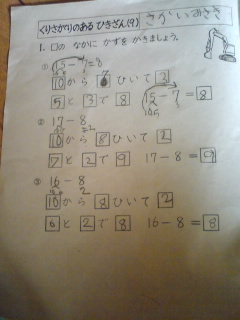 くりさがりのある ひきざん(9) さかいあさき
1. □の なかに かずを かきましょう。
① 15-7=8
10から 7 ひいて 3
5と 3で 8 15-7=8
② 17-8
10から 8 ひいて 2
7と 2で 9 17-8=9
③ 16-8
10から 8 ひいて 2
6と 2で 8 16-8=8